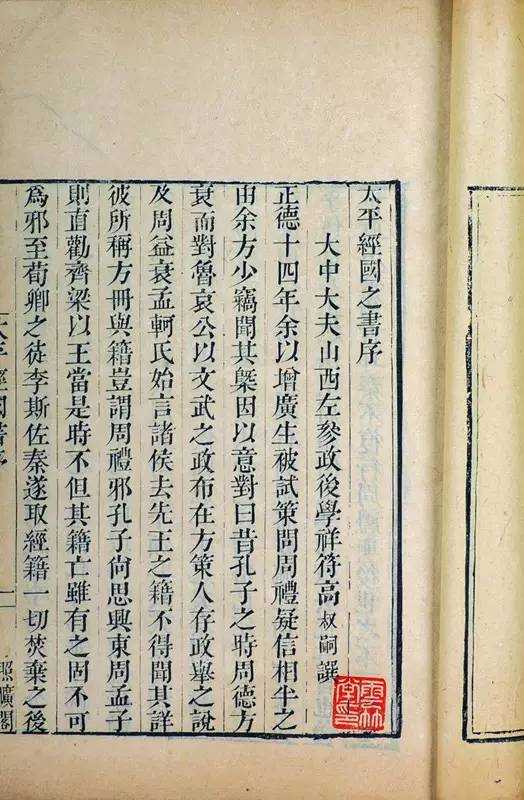 太平經國之書序
大中大夫山西左參政後學祥符高叔嗣譔
正德十四年余以增廣生被試策問周禮疑信相半之
由余方少竊聞其槩因以意對曰昔孔子之時周德方
衰而對魯哀公以文武之政布在方策人存政舉之說
及周益衰孟軻氏始言諸侯去先王之籍不得聞其詳
彼所稱方冊與籍豈謂周禮邪孔子尙思興東周孟子
則直勸齊梁以王當是時不但其籍亡雖有之固不可
爲邪至荀卿之徒李斯佐秦遂取經籍一切焚棄之後
太平經國書序
照曠閣